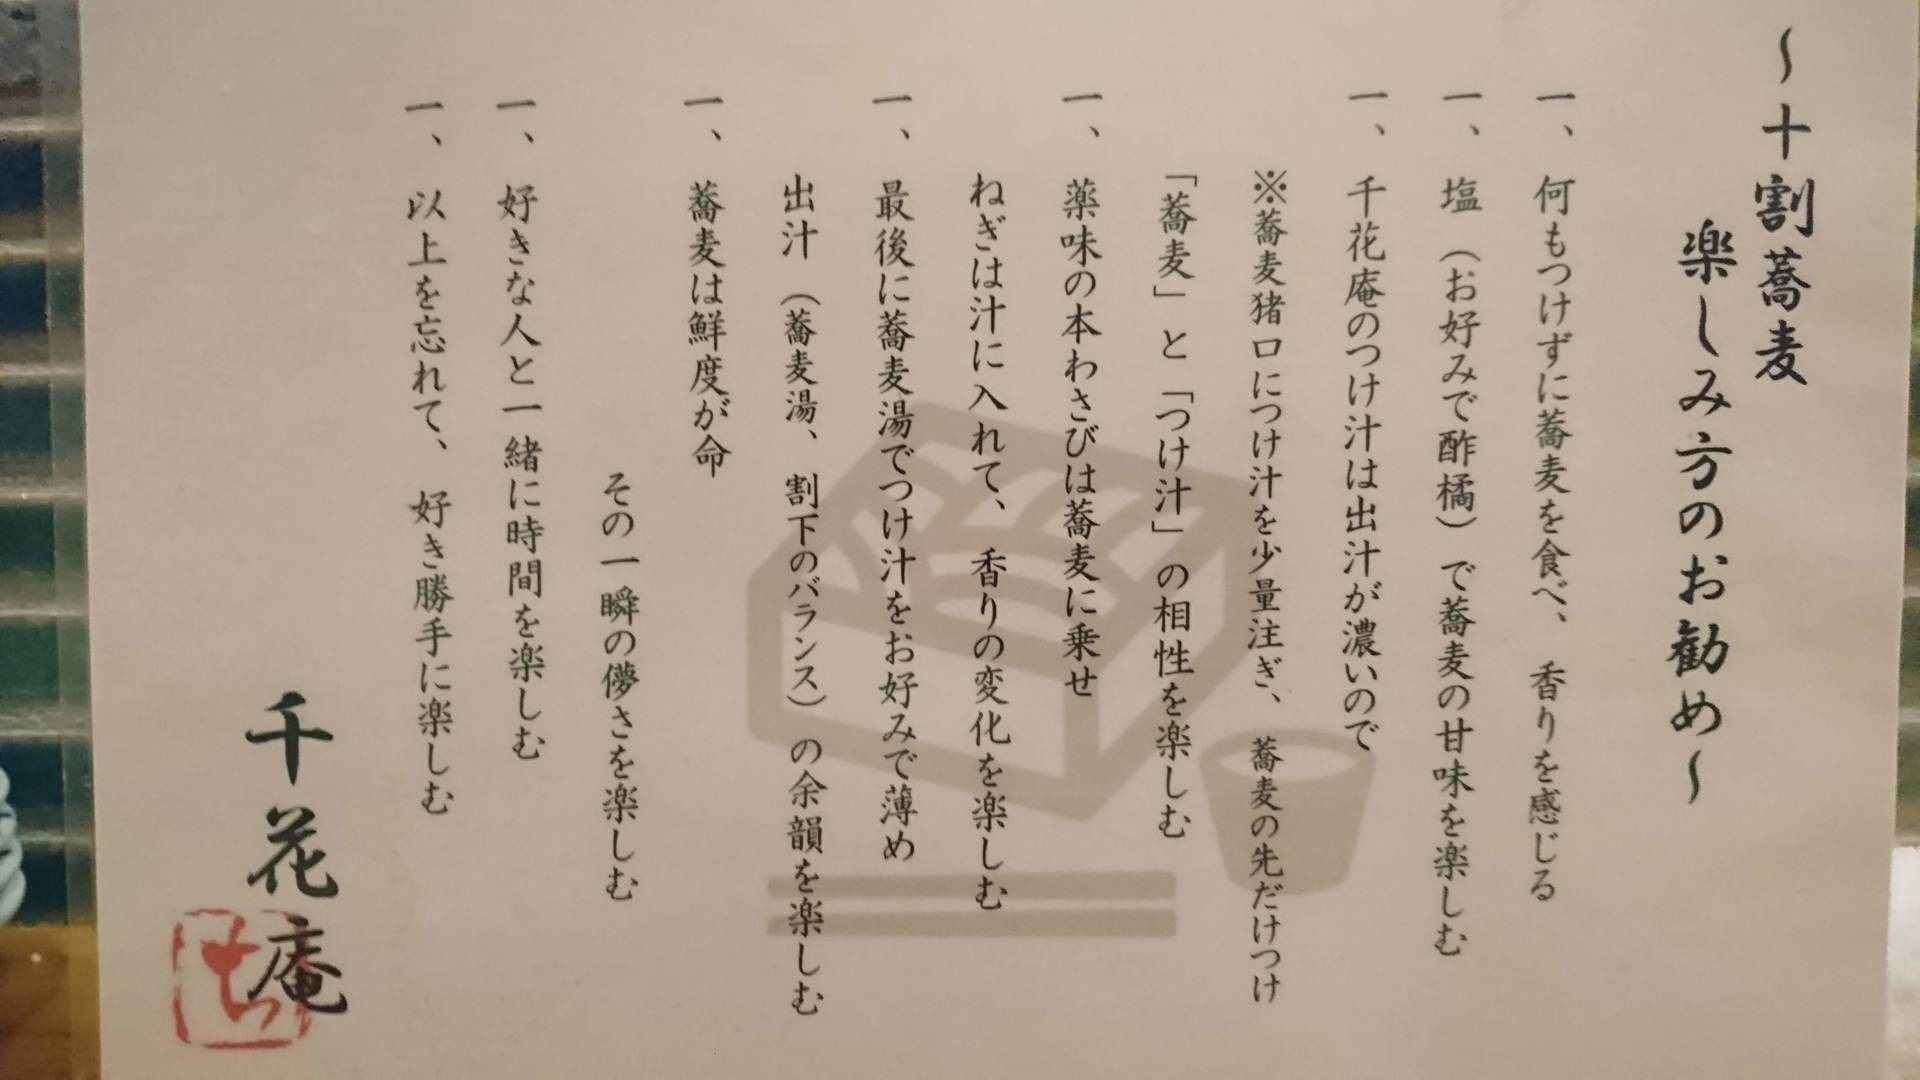 ～十割蕎麦
楽しみ方のお勧め～
一、何もつけずに蕎麦を食べ、香りを感じる
一、塩（お好みで酢橘）で蕎麦の甘味を楽しむ
一、千花庵のつけ汁は出汁が濃いので
※蕎麦猪口につけ汁を少量注ぎ、蕎麦の先だけつけ
「蕎麦」と「つけ汁」の相性を楽しむ
一、薬味の本わさびは蕎麦に乗せ
ねぎは汁に入れて、香りの変化を楽しむ
一、最後に蕎麦湯でつけ汁をお好みで薄め
出汁（蕎麦湯、割下のバランス）の余韻を楽しむ
一、蕎麦は鮮度が命
その一瞬の儚さを楽しむ
一、好きな人と一緒に時間を楽しむ
一、以上を忘れて、好き勝手に楽しむ
千花庵